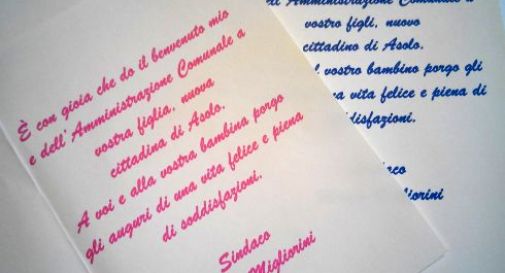 È con gioia che do il benvenuto mio
e dell'Amministrazione Comunale a
vostra figlia, nuova
cittadina di Asolo.
A voi e alla vostra bambina porgo
gli auguri di una vita felice e piena
di soddisfazioni.
Sindaco
Migliorini
Amministrazione Comunale a
vostro figli, nuovo
cittadino di Asolo.
vostro bambino porgo gli
vita felice e piena di